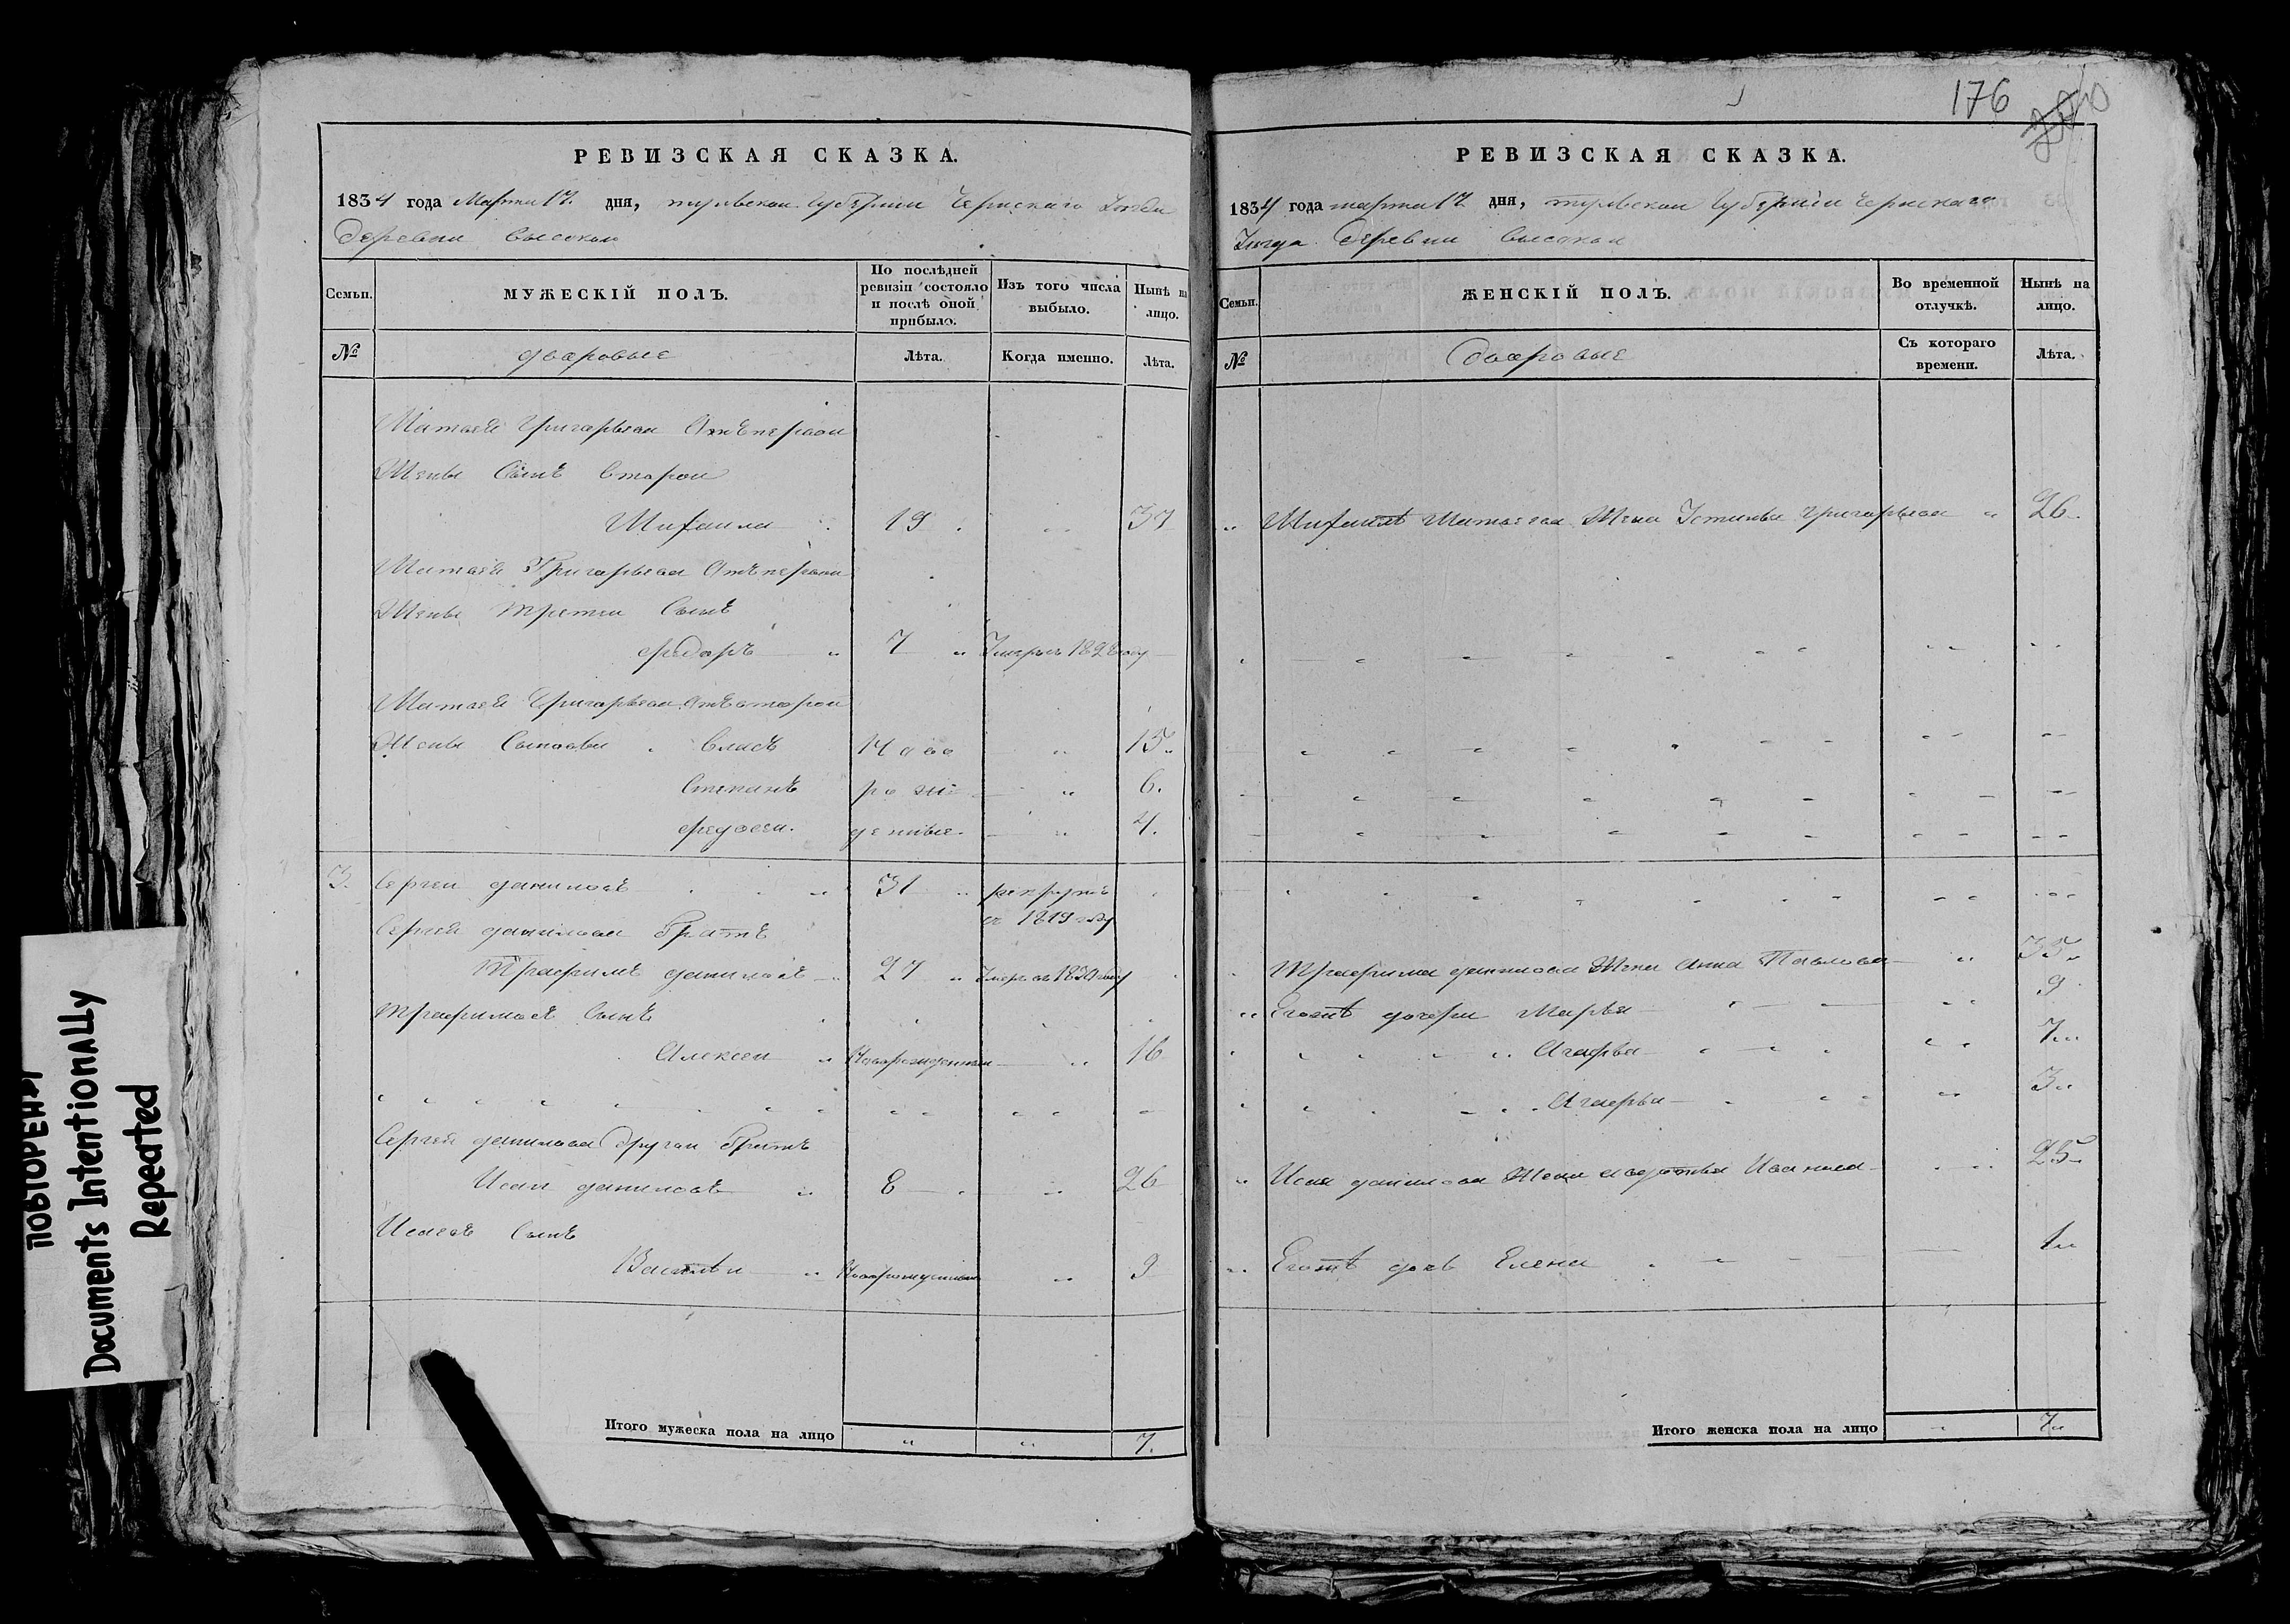 РЕВИЗСКАЯ СКАЗКА.
1834 года Марта 17. дня, тульской Губернии Чернскаго Уезда
Деревни высокой
Семьи.
МУЖЕСКІЙ ПОЛЪ.
По послѣдней ревизіи состояло и послѣ оной прибыло.
Изъ того числа выбыло.
Нынѣ на лицо.
№
дваровые
Лѣта.
Когда именно.
Лѣта.
Матвея Григорьева Отъ первой
Жены Сынъ второй
Михаила 19 37
Матвея Григорьева Отъ первой
Жены третий Сынъ
Федаръ 7 Умеръ 1828 году
Матвея Григорьева Отъ второй
Жены Сыновьи Власъ 15
Степанъ рож 6.
Федосеи денные 4.
3. Сергеи даниловъ 31 рекрутъ
в 1819 году
Сергея данилова Братъ
Трафимъ даниловъ 27 Умеръ в 1830 году
Трафимовъ Сынъ
Алексеи Новорожденнаи 16
Сергея данилова Другаи Братъ
Исаи даниловъ 8 26
Исаевъ Сынъ
Василеи Новорожденнаи 9
Итого мужеска пола на лицо 7.
176
РЕВИЗСКАЯ СКАЗКА.
1834 года марта 17 дня, тульской Губернии Чернскаго
Уезда Деревни высокой
Семьи.
ЖЕНСКІЙ ПОЛЪ.
Во временной отлучкѣ.
Нынѣ на лицо.
№
Дваровые
Съ котораго времени.
Лѣта.
Михаилы Матвеева Жена Устинья Григорьева 26
Трафима данилова Жена Анна Павлова 35
Еговы дочери Марья 9
Агафья 7
Агафья 3
Исая данилова Жена Авдотья Иванова 25
Еговы дочь Елена 1
Итого женска пола на лицо 7
ПОВТОРЕНИЯ
Documents Intentionally
Repeated